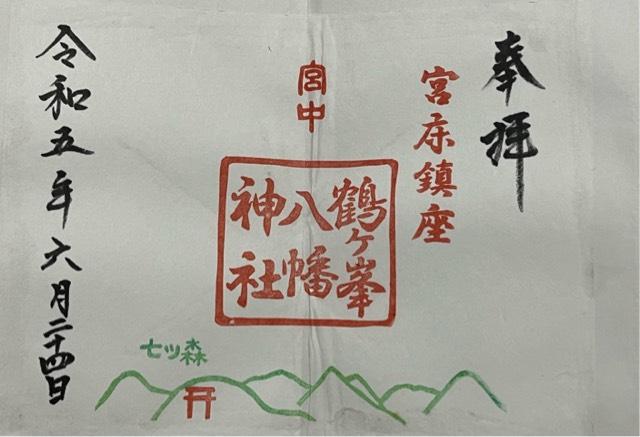 奉拝
宮床鎮座
宮中
鶴ヶ峯
八幡
神社
令和五年六月二十四日
七ツ森